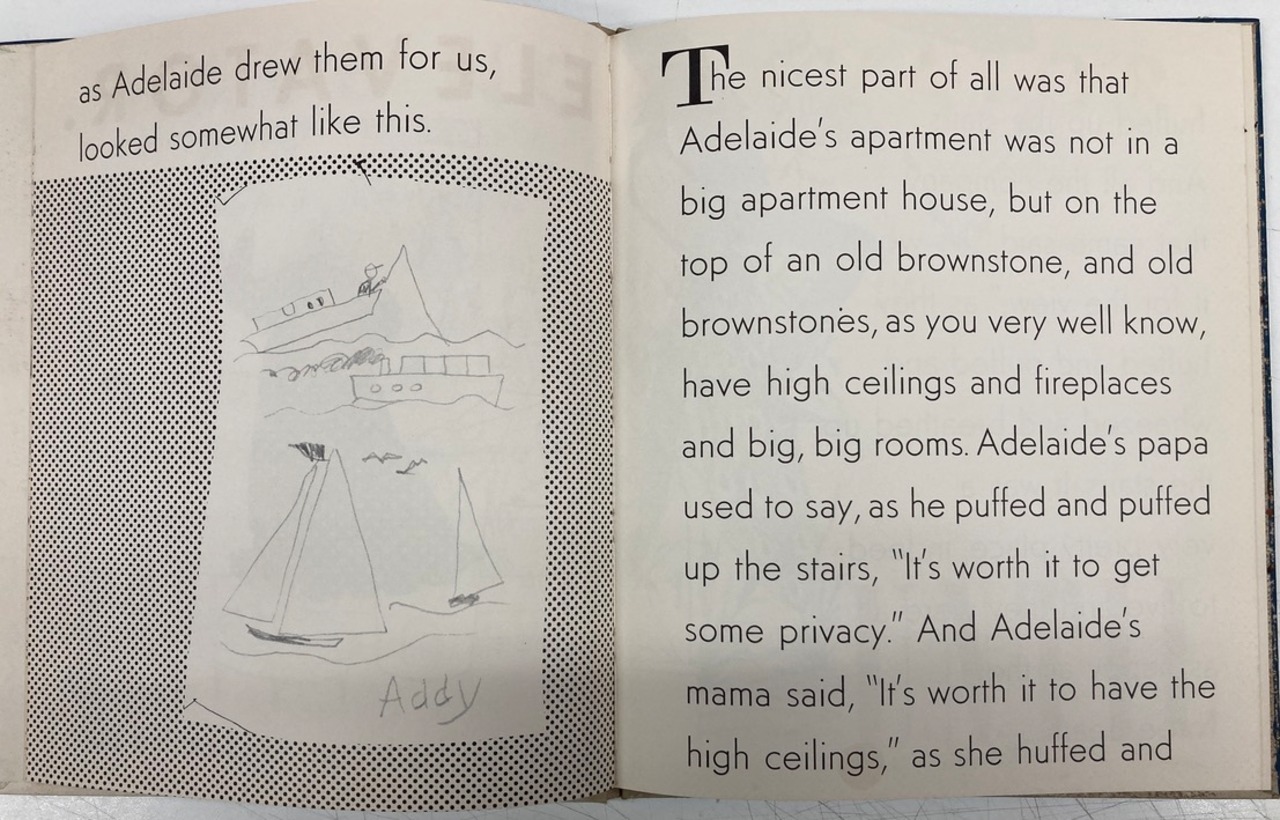 as Adelaide drew them for us,
looked somewhat like this.
Addy
The nicest part of all was that
Adelaide's apartment was not in a
big apartment house, but on the
top of an old brownstone, and old
brownstones, as you very well know,
have high ceilings and fireplaces
and big, big rooms. Adelaide's papa
used to say, as he puffed and puffed
up the stairs, "It's worth it to get
some privacy." And Adelaide's
mama said, "It's worth it to have the
high ceilings," as she huffed and